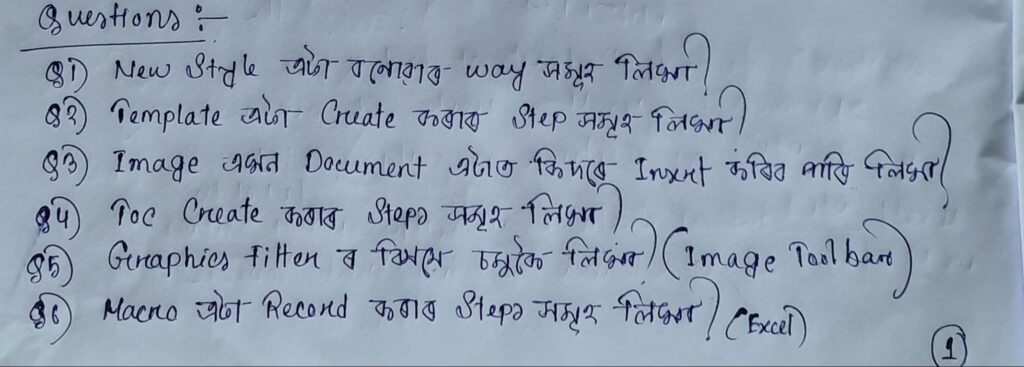 Questions :-
Q1) New Style এটা বনোৱাৰ way সমূহ লিখা।
Q2) Template এটা Create কৰাৰ Step সমূহ লিখা।
Q3) Image এখন Document এটাত কিদৰে Insert কৰিব পাৰি লিখা।
Q4) Toc Create কৰাৰ Steps সমূহ লিখা।
Q5) Graphics Filter ৰ বিষয়ে চমুকৈ লিখা। (Image Toolbar)
Q6) Macro এটা Record কৰাৰ Steps সমূহ লিখা। (Excel)
1